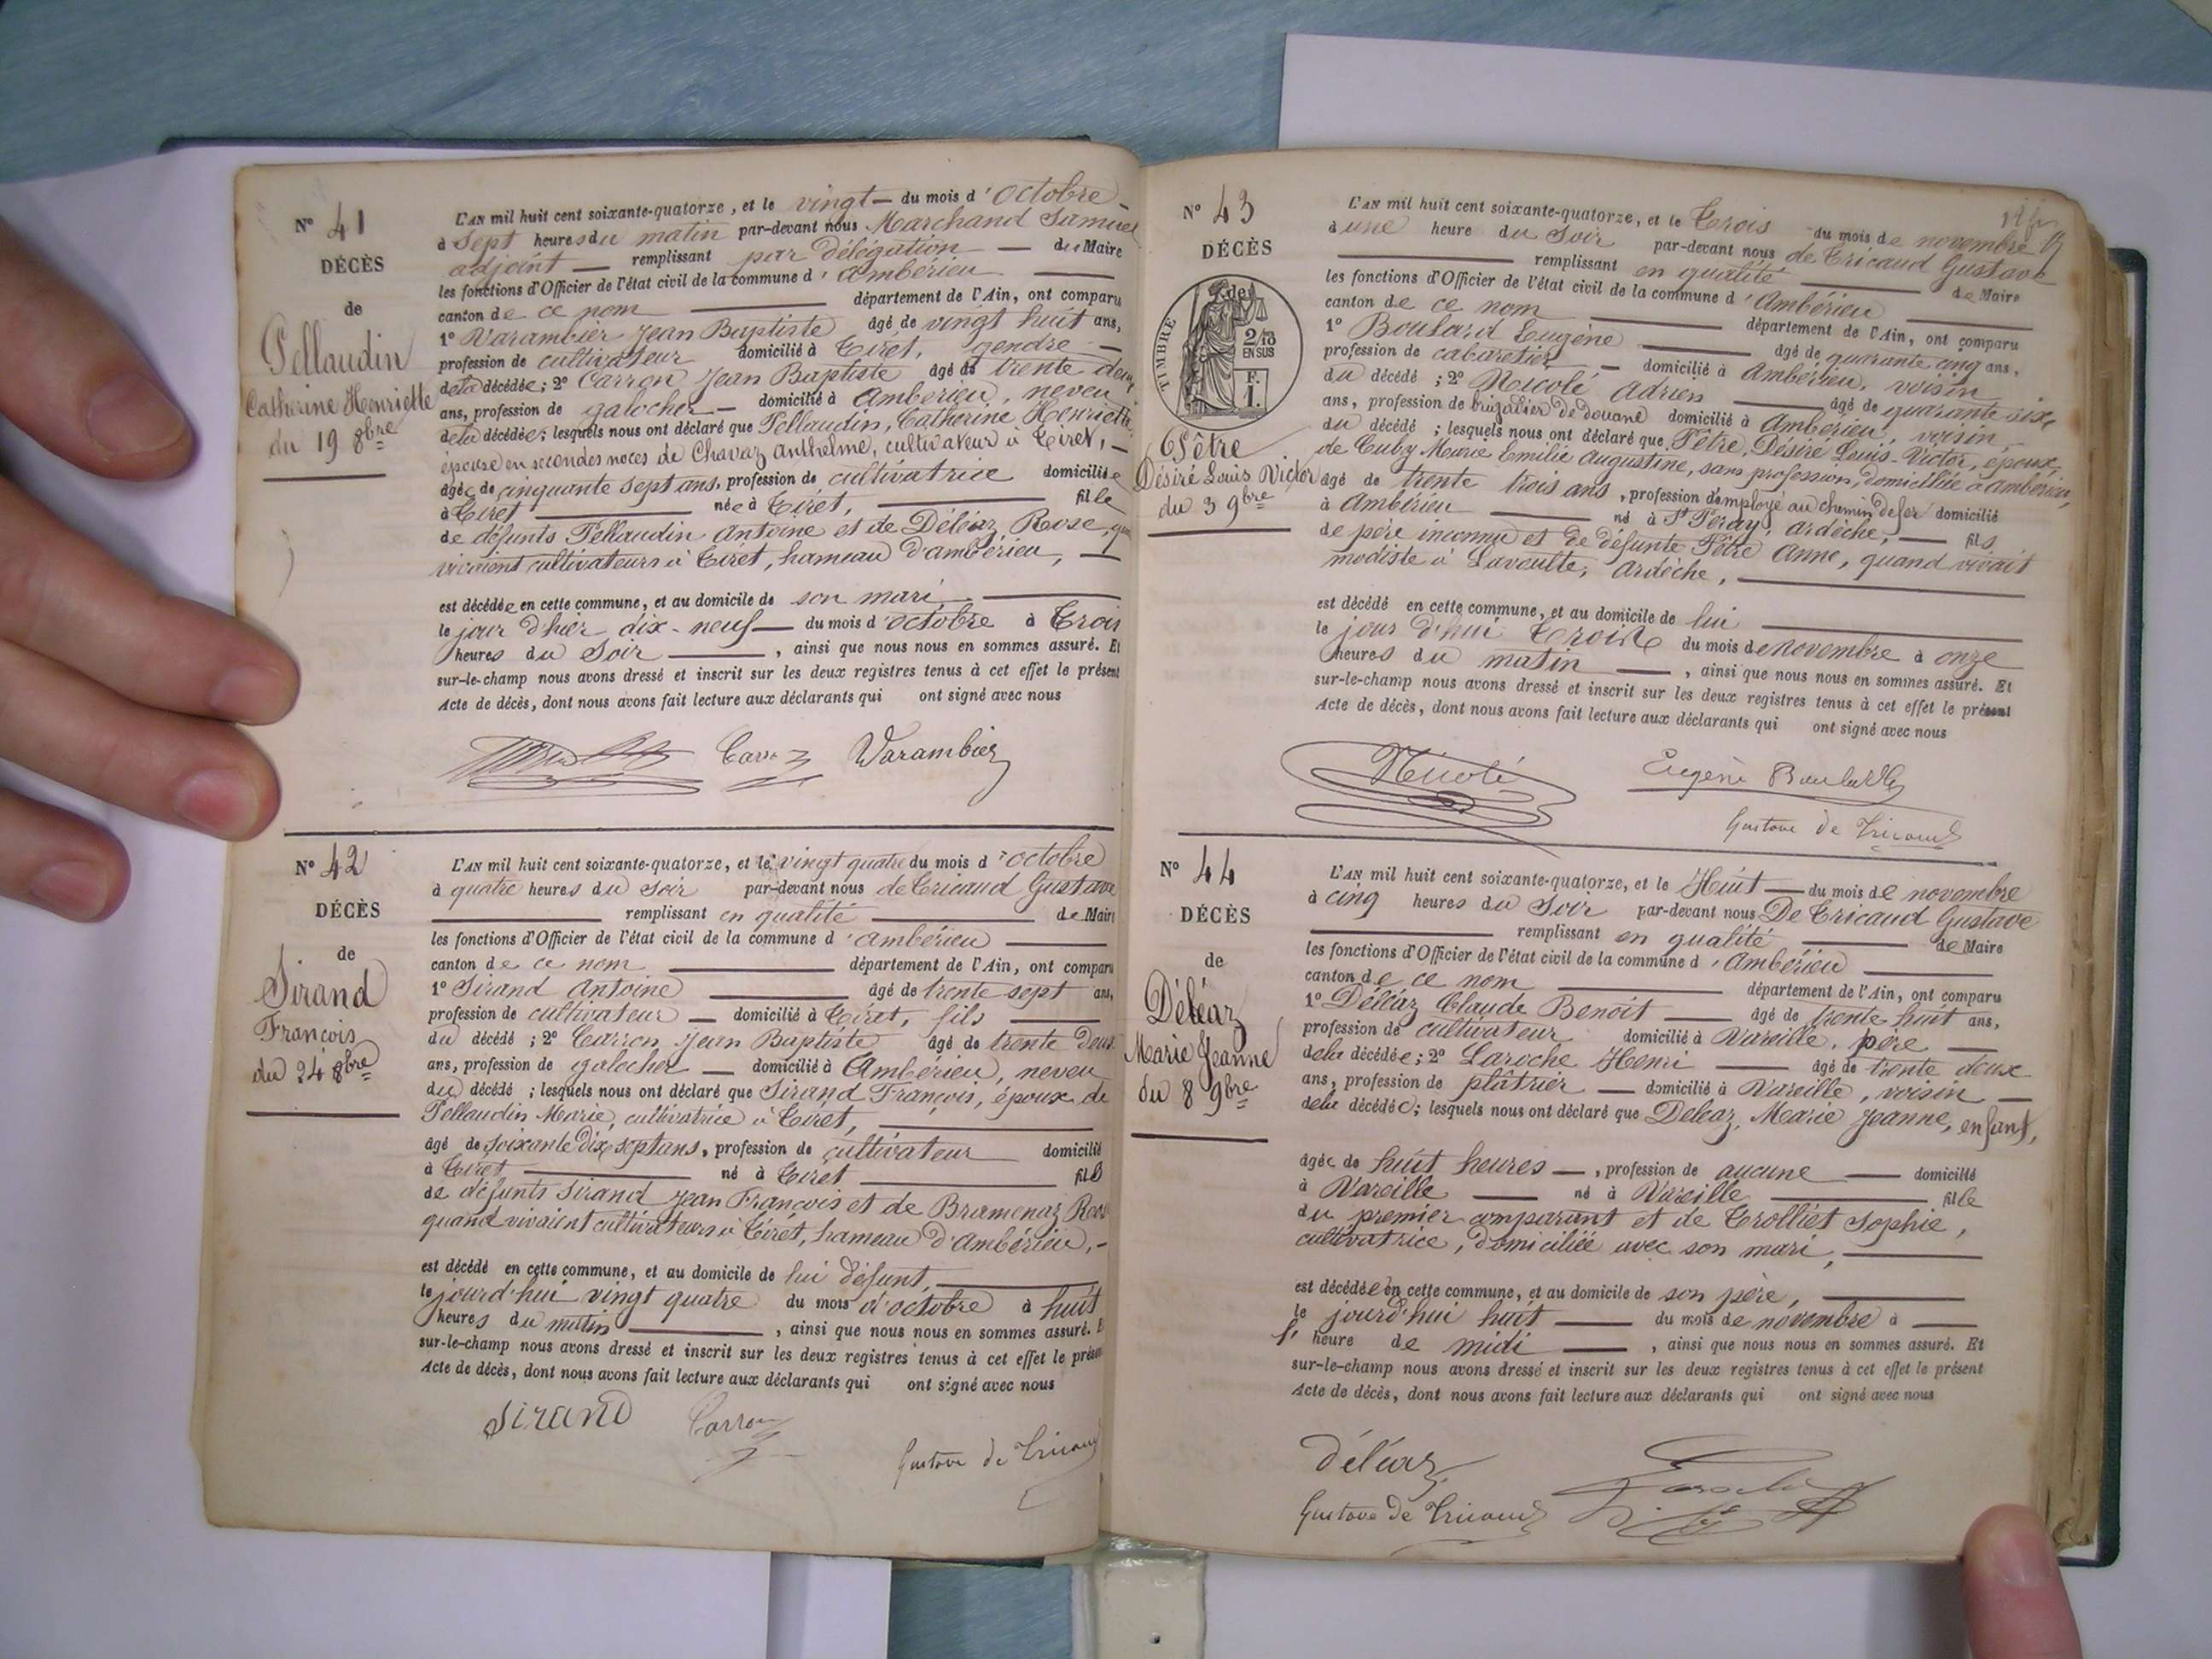 N° 41
DÉCÈS
de
Pellaudin
Catherine Henriette
du 19 8bre
L'AN mil huit cent soixante-quatorze, et le vingt — du mois d'Octobre —
à Sept heures du matin par-devant nous Marchand Samuel
adjoint — remplissant par délégation — du Maire
les fonctions d'Officier de l'état civil de la commune d'Ambérieu
canton de ce nom département de l'Ain, ont comparu
1° Varambier Jean Baptiste âgé de vingt huit ans,
profession de cultivateur domicilié à Tiret, gendre —
de la décédée; 2° Carron Jean Baptiste âgé de trente deux
ans, profession de galocher — domicilié à Ambérieu, neveu
de la décédée; lesquels nous ont déclaré que Pellaudin, Catherine Henriette,
épouse en secondes noces de Chavaz Anthelme, cultivateur à Tiret, —
âgée de cinquante sept ans, profession de cultivatrice domiciliée
à Tiret née à Tiret, fille
de défunts Pellaudin Antoine et de Déléaz Rose,
vivaient cultivateurs à Tiret, hameau d'ambérieu, —
est décédée en cette commune, et au domicile de son mari
le jour d'hier dix-neuf — du mois d'octobre à Trois
heures du Soir, ainsi que nous nous en sommes assuré. Et
sur-le-champ nous avons dressé et inscrit sur les deux registres tenus à cet effet le présent
Acte de décès, dont nous avons fait lecture aux déclarants qui ont signé avec nous
Varambier
N° 42
DÉCÈS
de
Sirand
François
du 24 8bre
L'AN mil huit cent soixante-quatorze, et le vingt quatre du mois d'octobre
à quatre heures du soir par-devant nous de Tricaud Gustave
remplissant en qualité de Maire
les fonctions d'Officier de l'état civil de la commune d'ambérieu
canton de ce nom département de l'Ain, ont comparu
1° Sirand Antoine âgé de trente sept ans,
profession de cultivateur — domicilié à Tiret, fils
du décédé; 2° Carron Jean Baptiste âgé de trente Deux
ans, profession de galocher — domicilié à Ambérieu, neveu
du décédé; lesquels nous ont déclaré que Sirand François, époux de
Pellaudin Marie, cultivatrice à Tiret,
âgé de soixante dix sept ans, profession de cultivateur domicilié
à Tiret né à Tiret fils
de défunts Sirand Jean François et de Bramenaz Rose
quand vivaient cultivateurs à Tiret, hameau d'Ambérieu, —
est décédé en cette commune, et au domicile de lui défunt,
le jourd'hui vingt quatre du mois d'octobre à huit
heures du matin, ainsi que nous nous en sommes assuré. Et
sur-le-champ nous avons dressé et inscrit sur les deux registres tenus à cet effet le présent
Acte de décès, dont nous avons fait lecture aux déclarants qui ont signé avec nous
Sirand Carron
Gustave de Tricaud
N° 43
DÉCÈS
de
TIMBRE
2/10
EN SUS
F.
1.
Pêtre
Désiré Louis Victor
du 3 9bre
L'AN mil huit cent soixante-quatorze, et le Trois du mois de novembre
à une heure du Soir par-devant nous de Tricaud Gustave
remplissant en qualité de Maire
les fonctions d'Officier de l'état civil de la commune d'Ambérieu
canton de ce nom département de l'Ain, ont comparu
1° Boulard Eugène âgé de quarante cinq ans,
profession de cabaretier — domicilié à Ambérieu, voisin
du décédé; 2° Nicolé Adrien âgé de quarante six
ans, profession de brigadier de douane domicilié à Ambérieu, voisin
du décédé; lesquels nous ont déclaré que Pêtre, Désiré Louis-Victor, époux
de Cuby Marie Emilie Augustine, sans profession, domiciliée à ambérieu,
âgé de trente trois ans, profession d'employé au chemin de fer domicilié
à Ambérieu né à St Peray, Ardèche, — fils
de père inconnu et de défunte Pêtre Anne, quand vivait
modiste à Lavoulte, Ardèche,
est décédé en cette commune, et au domicile de lui
le jour d'hui Trois du mois de novembre à onze
heures du matin —, ainsi que nous nous en sommes assuré. Et
sur-le-champ nous avons dressé et inscrit sur les deux registres tenus à cet effet le présent
Acte de décès, dont nous avons fait lecture aux déclarants qui ont signé avec nous
Nicolé
Gustave de Tricaud
N° 44
DÉCÈS
de
Déléaz
Marie Jeanne
du 8 9bre
L'AN mil huit cent soixante-quatorze, et le Huit — du mois de novembre
à cinq heures du Soir par-devant nous De Tricaud Gustave
remplissant en qualité de Maire
les fonctions d'Officier de l'état civil de la commune d'Ambérieu
canton de ce nom département de l'Ain, ont comparu
1° Déléaz Claude Benoit — âgé de trente huit ans,
profession de cultivateur domicilié à Vareille, père —
de la décédée; 2° Laroche Henri — âgé de trente deux
ans, profession de plâtrier — domicilié à Vareille, voisin —
de la décédée; lesquels nous ont déclaré que Deléaz, Marie Jeanne, enfant,
âgée de huit heures —, profession de aucune — domicilié
à Vareille — né à Vareille fille
du premier comparant et de Trolliet Sophie,
cultivatrice, domiciliée avec son mari,
est décédée en cette commune, et au domicile de son père,
le jourd'hui huit — du mois de novembre à —
l' heure de midi —, ainsi que nous nous en sommes assuré. Et
sur-le-champ nous avons dressé et inscrit sur les deux registres tenus à cet effet le présent
Acte de décès, dont nous avons fait lecture aux déclarants qui ont signé avec nous
Déléaz
Gustave de Tricaud